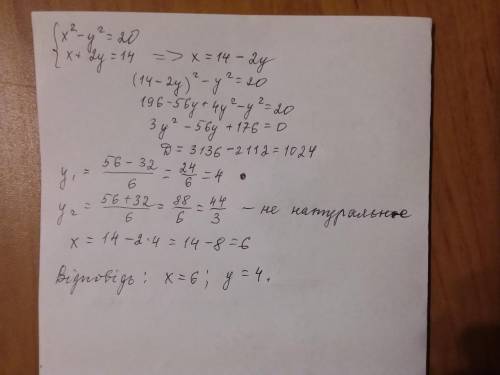 {x² - y² = 20
{x + 2y = 14 => x = 14 - 2y
(14 - 2y)² - y² = 20
196 - 56y + 4y² - y² = 20
3y² - 56y + 176 = 0
D = 3136 - 2112 = 1024
y₁ = (56 - 32)/6 = 24/6 = 4
y₂ = (56 + 32)/6 = 88/6 = 44/3 - не натуральне
x = 14 - 2·4 = 14 - 8 = 6
Відповідь: x = 6; y = 4.